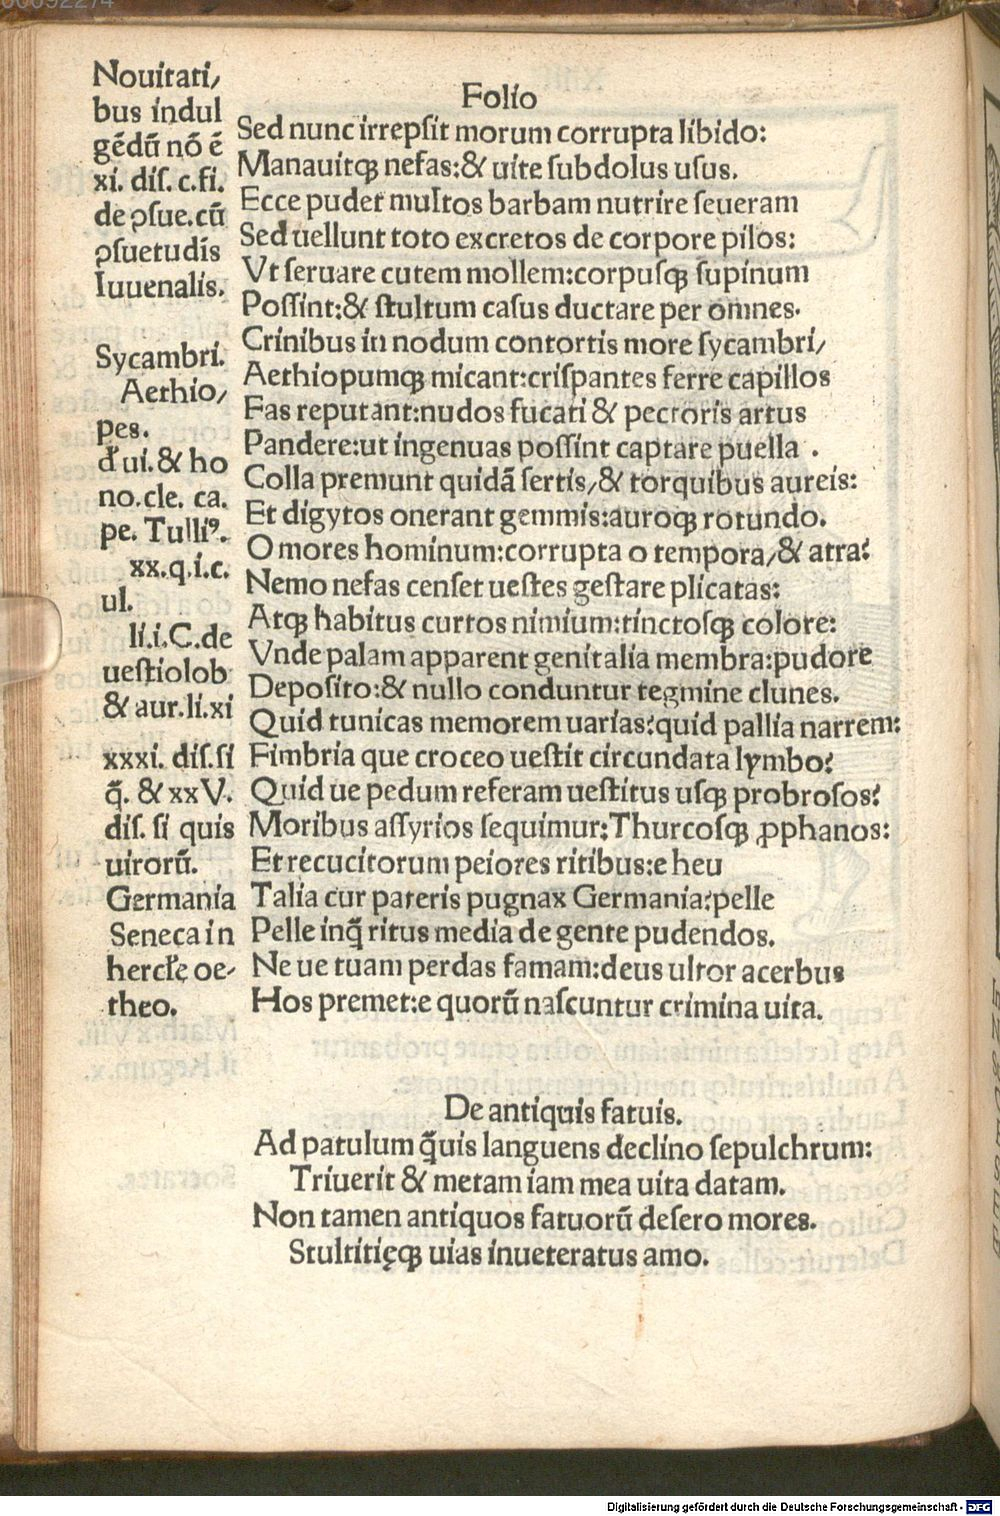 Folio
Nouitati/
bus indul
gēdū nō ē
xi. dis. c.fi.
de ꝯsue.cū
ꝯsuetudis
Iuuenalis.
Sycambri.
Aethio/
pes.
d̄ ui.& ho
no.cle. ca.
pe. Tulliꝰ.
xx.q.i.c.
ul.
li.i.C.de
uestiolob
& aur.li.xi
xxxi. dis.si
q̄. & xxV.
dis. si quis
uirorū.
Germania
Seneca in
hercĺe oe-
theo.
Sed nunc irrepsit morum corrupta libido:
Manauitqꝫ nefas:& uite subdolus usus.
Ecce pudet multos barbam nutrire seueram
Sed uellunt toto excretos de corpore pilos:
Vt seruare cutem mollem:corpusqꝫ supinum
Possint:& stultum casus ductare per omnes.
Crinibus in nodum contortis more sycambri/
Aethiopumqꝫ micant:crispantes ferre capillos
Fas reputant:nudos fucati & pectoris artus
Pandere:ut ingenuas possint captare puella .
Colla premunt quidā sertis/& torquibus aureis:
Et digytos onerant gemmis:auroqꝫ rotundo.
O mores hominum:corrupta o tempora/& atra?
Nemo nefas censet uestes gestare plicatas:
Atqꝫ habitus curtos nimium:tinctosqꝫ colore:
Vnde palam apparent genitalia membra:pudore
Deposito:& nullo conduntur tegmine clunes.
Quid tunicas memorem uarias?quid pallia narrem:
Fimbria que croceo uestit circundata lymbo?
Quid ue pedum referam uestitus usqꝫ probrosos?
Moribus assyrios sequimur:Thurcosqꝫ ꝓphanos:
Et recucitorum peiores ritibus:e heu
Talia cur pateris pugnax Germania?pelle
Pelle inq̄ ritus media de gente pudendos.
Ne ue tuam perdas famam:deus ultor acerbus
Hos premet:e quorū nascuntur crimina uita.
De antiquis fatuis.
Ad patulum q̄uis languens declino sepulchrum:
Triuerit & metam iam mea uita datam.
Non tamen antiquos fatuorū desero mores.
Stultitięqꝫ uias inueteratus amo.
Digitalisierung gefördert durch die Deutsche Forschungsgemeinschaft - DFG